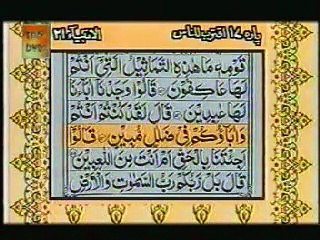 الانبیآء ۲۱
پارہ ۱۷ اقترب للناس
قَوْمِهٖ مَا هٰذِهِ التَّمَاثِيْلُ الَّتِيْٓ اَنْتُمْ
لَهَا عٰكِفُوْنَ ۝ قَالُوْا وَجَدْنَآ اٰبَآءَنَا
لَهَا عٰبِدِيْنَ ۝ قَالَ لَقَدْ كُنْتُمْ اَنْتُمْ
وَاٰبَآؤُكُمْ فِيْ ضَلٰلٍ مُّبِيْنٍ ۝ قَالُوْٓا
اَجِئْتَنَا بِالْحَقِّ اَمْ اَنْتَ مِنَ اللّٰعِبِيْنَ ۝
قَالَ بَلْ رَّبُّكُمْ رَبُّ السَّمٰوٰتِ وَالْاَرْضِ